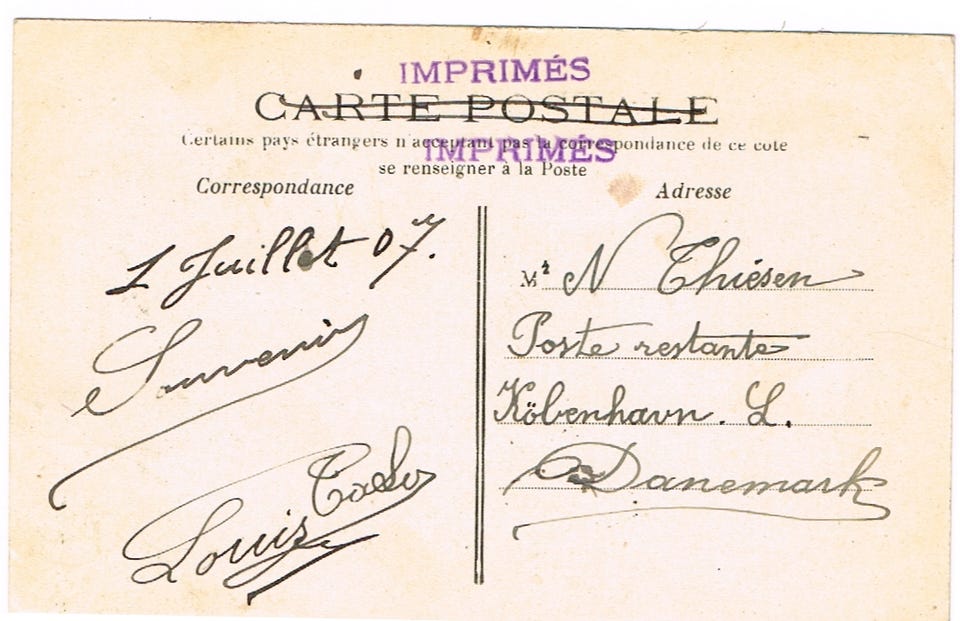 IMPRIMÉS
CARTE POSTALE
Certains pays étrangers n'acceptant pas la correspondance de ce coté
IMPRIMÉS
se renseigner à la Poste
Correspondance
Adresse
1 Juillet 07.
Souvenir
Louis
M N Thiésen
Poste restante
Köbenhavn. L.
Danemark